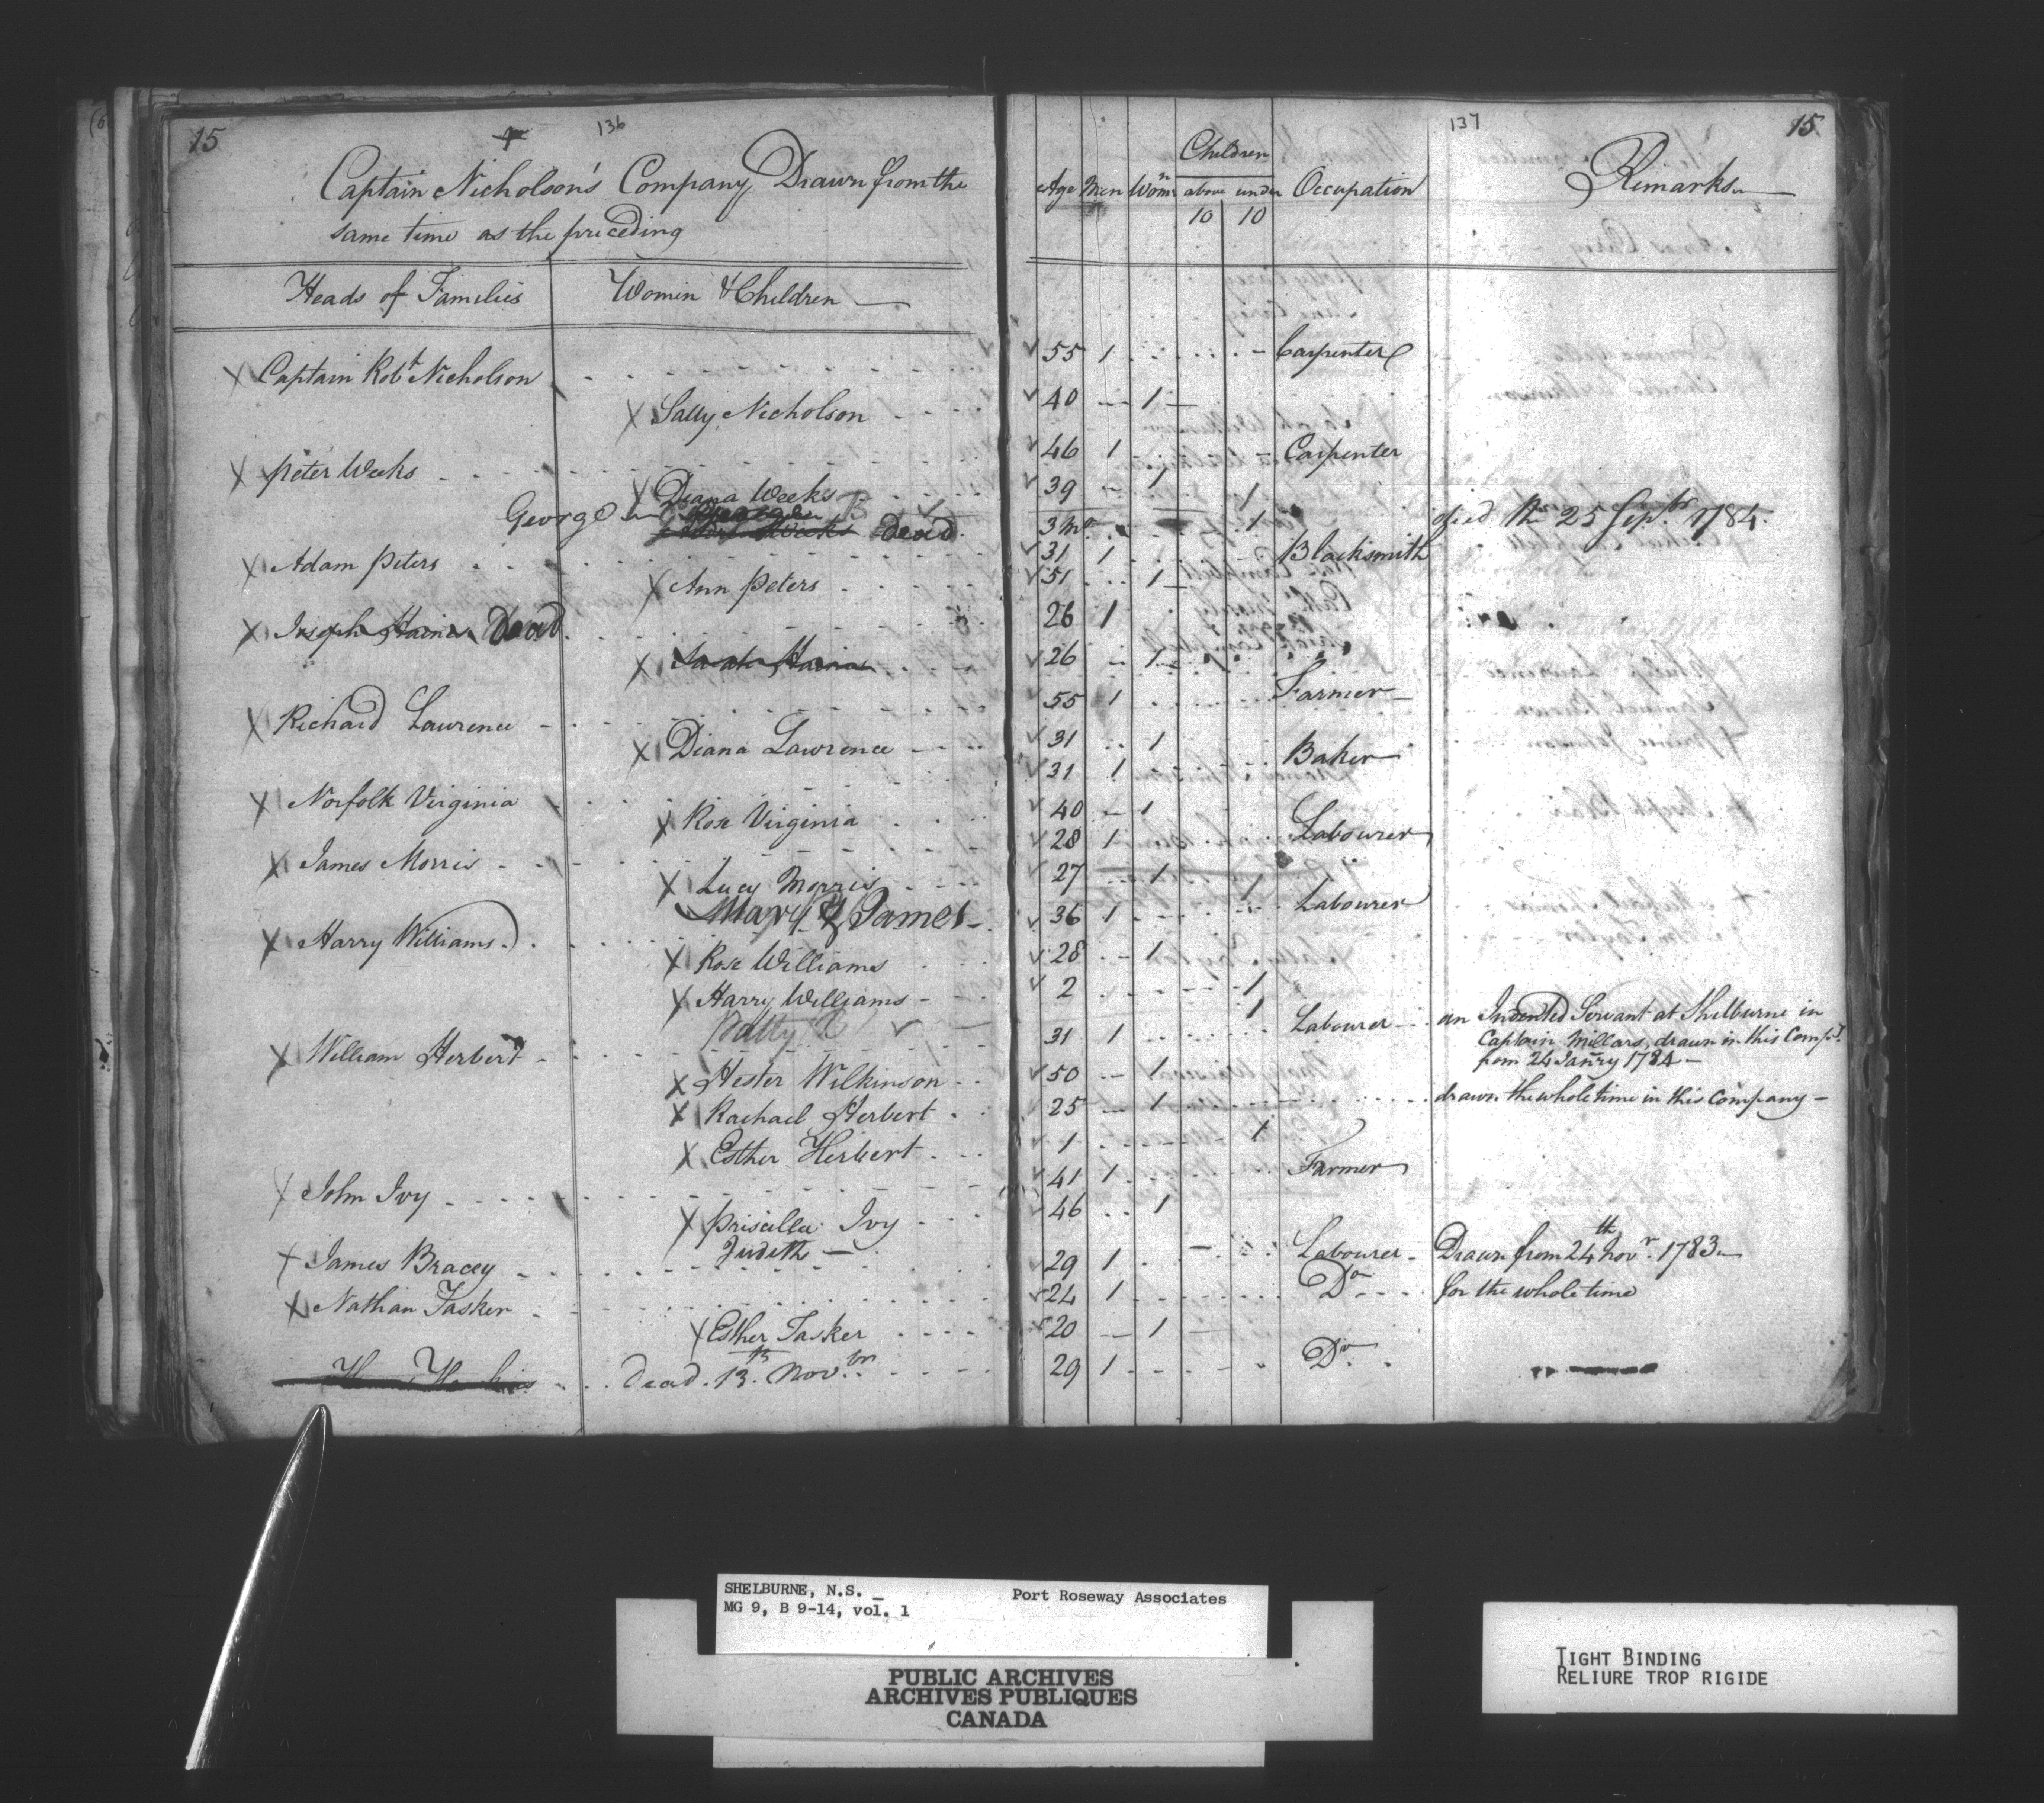 15 136
Captain Nicholson's Company, Drawn from the
same time as the preceding
Heads of Families Women & Children
Captain Robt Nicholson
Sally Nicholson
Peter Weeks
Diana Weeks
George
Dead
Adam Peters
Ann Peters
Joseph Hains Dead
Sarah Hains
Richard Lawrence
Diana Lawrence
Norfolk Virginia
Rose Virginia
James Morris
Lucy Morris
Mary & James
Harry Williams
Rose Williams
Harry Williams
Patty
William Herbert
Hester Wilkinson
Rachael Herbert
Esther Herbert
John Ivy
Priscilla Ivy
Judith
James Bracey
Nathan Tasker
Esther Tasker
dead 13th Novbr
137 15
Age Men Womn Children above 10 under 10 Occupation Remarks
55 1 Carpenter
40 1
46 1 Carpenter
39 1 1
3 Mo 1 died the 25 Septbr 1784
31 1 Blacksmith
51 1
26 1
26 1
55 1 Farmer
31 1
31 1 Baker
40 1
28 1 Labourer
27 1 1
36 1 Labourer
28 1
2 1
1
31 1 Labourer an Indented Servant at Shelburne in
Captain Millars, drawn in this Compy
from 24 Janry 1784
50 1
25 1 drawn the whole time in this Company
1 1
41 1 Farmer
46 1
29 1 Labourer Drawn from 24th Novr 1783
24 1 Do for the whole time
20 1
29 1 Do
SHELBURNE, N.S. Port Roseway Associates
MG 9, B 9-14, vol. 1
PUBLIC ARCHIVES
ARCHIVES PUBLIQUES
CANADA
TIGHT BINDING
RELIURE TROP RIGIDE